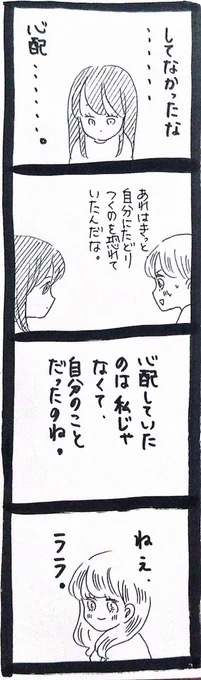 してなかったな
・・・・・・
心配・・・・・・。
あれはきっと
自分にたどり
つくのを恐れて
いたんだな。
心配していた
のは私じゃ
なくて、
自分のこと
だったのね。
ねぇ、
ララ。